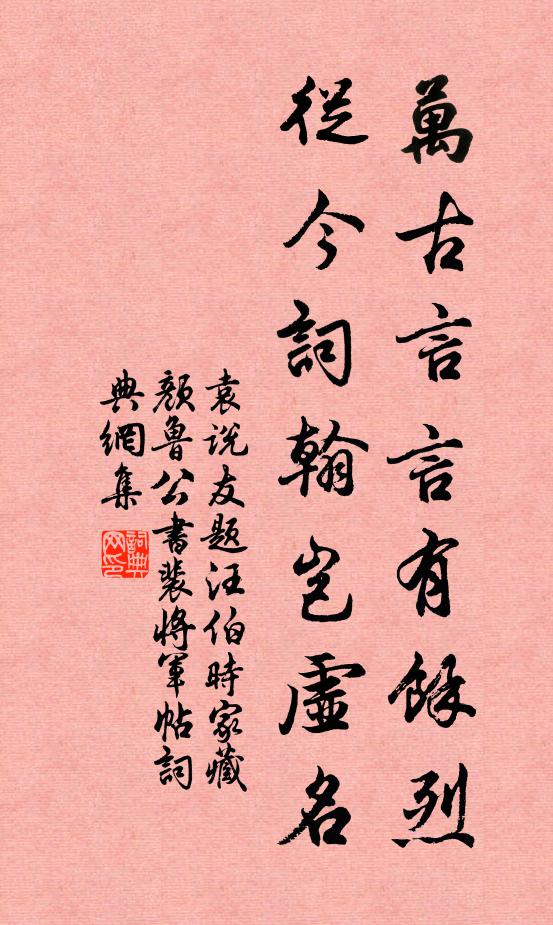 萬古言言有餘烈
從今詞翰豈虛名
袁說友題汪伯時家藏
顏魯公書裴將軍帖詞
典網集
詞典
网印